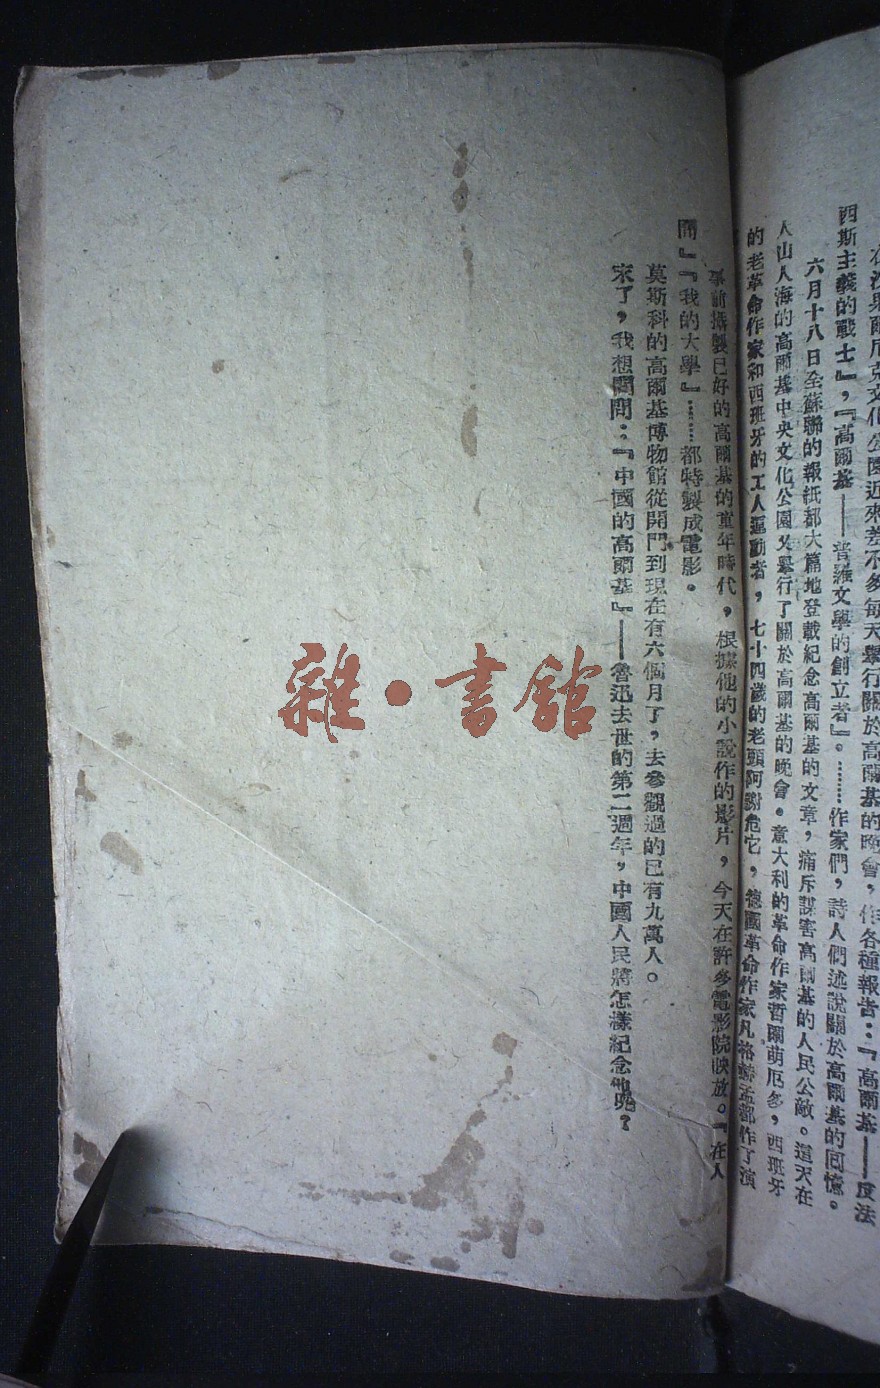 在沒果爾尼克文化公園近來差不多每天舉行關於高爾基的晚會，作各種報告：『高爾基——反法
西斯主義的戰士』，『高爾基——普羅文學的創立者』。……作家們，詩人們述說關於高爾基的回憶。
六月十八日全蘇聯的報紙都大篇地登載紀念高爾基的文章，痛斥謀害高爾基的人民公敵。這天在
人山人海的高爾基中央文化公園又舉行了關於高爾基的晚會。意大利的革命作家哲爾萌厄多，西班牙
的老革命作家和西班牙的工人運動者，七十四歲的老頭阿謝危它，德國革命作家凡格赫孟都作了演
事前攝製已好的高爾基的童年時代，根據他的小說作的影片，今天在許多電影院映放。『在人
間』『我的大學』……都特製成電影。
莫斯科的高爾基博物館從開門到現在有六個月了，去參觀過的已有九萬人。
末了，我想問問：『中國的高爾基』——魯迅去世的第二週年，中國人民將怎樣紀念他呢？
雜·書館